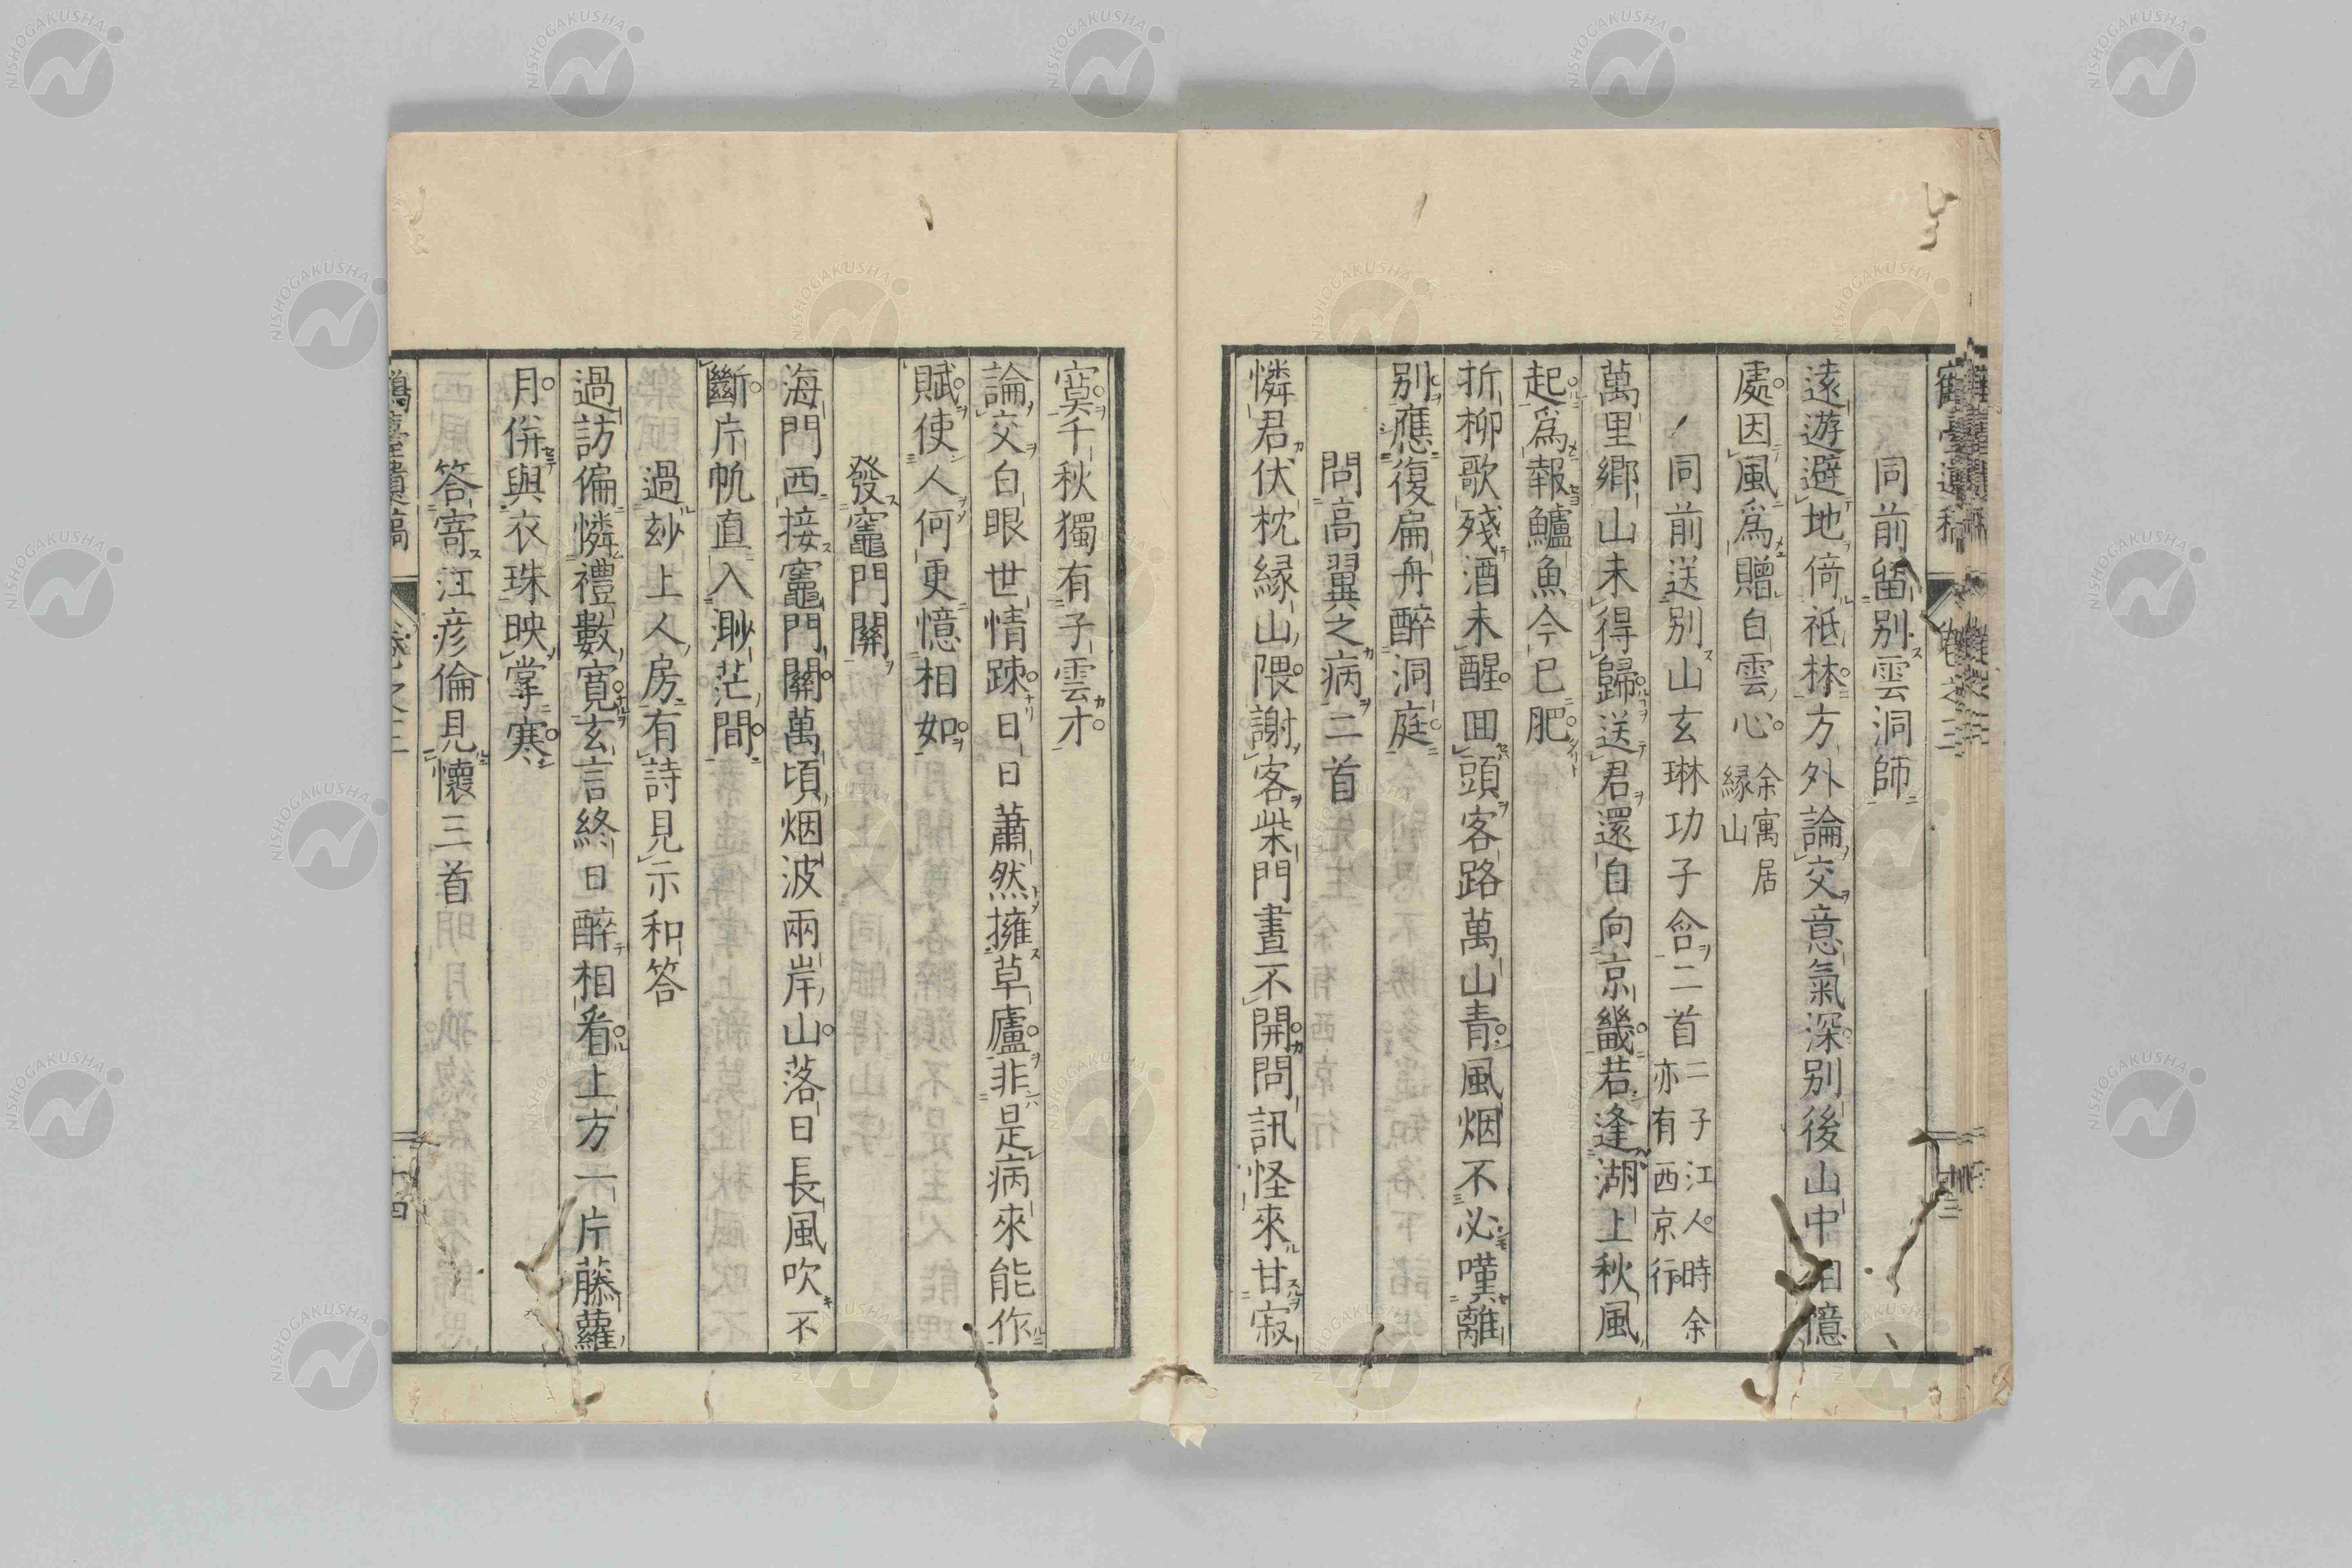 同前留別雲洞師
遠遊避地倚祇林方外論交意氣深別後山中相憶
處因風爲贈白雲心余寓居緣山
同前送別山玄琳功子含二首二子江人時余亦有西京行
萬里鄉山未得歸送君還自向京畿若逢湖上秋風
起爲報鱸魚今已肥
折柳歌殘酒未醒回頭客路萬山青風烟不必嘆離
別應復扁舟醉洞庭
問高翼之病二首
憐君伏枕緣山隈謝客柴門晝不開問訊怪來甘寂
寞千秋獨有子雲才
論交白眼世情疎日日蕭然擁草廬非是病來能作
賦使人何更憶相如
發竈門關
海門西接竈門關萬頃烟波兩岸山落日長風吹不
斷片帆直入渺茫間
過玅上人房有詩見示和答
過訪偏憐禮數寬玄言終日醉相看上方一片藤蘿
月併與衣珠映掌寒
答寄江彥倫見懷三首
鶴臺遺稿 卷之三 十四
NISHOGAKUSHA